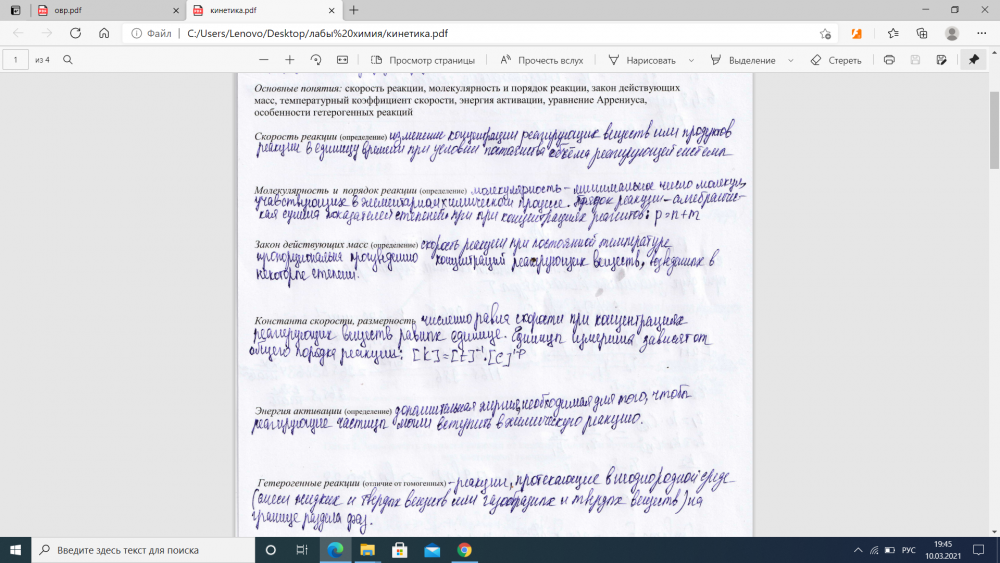 овр.pdf
кинетика.pdf
Файл
C:/Users/Lenovo/Desktop/лабы%20химия/кинетика.pdf
1
из 4
Просмотр страницы
Прочесть вслух
Нарисовать
Выделение
Стереть
Основные понятия: скорость реакции, молекулярность и порядок реакции, закон действующих
масс, температурный коэффициент скорости, энергия активации, уравнение Аррениуса,
особенности гетерогенных реакций
Скорость реакции (определение) изменение концентрации реагирующих веществ или продуктов
реакции в единицу времени при условии постоянства объёма реагирующей системы
Молекулярность и порядок реакции (определение) молекулярность – минимальное число молекул,
участвующих в элементарном химическом процессе. Порядок реакции – алгебраичес-
кая сумма показателей степеней при при концентрациях реагентов: p=n+m
Закон действующих масс (определение) скорость реакции при постоянной температуре
пропорциональна произведению концентраций реагирующих веществ, возведенных в
некоторые степени.
Константа скорости, размерность численно равна скорости при концентрациях
реагирующих веществ равных единице. Единицы измерения зависят от
общего порядка реакции: [k]=[t]⁻¹·[C]¹⁻ᵖ
Энергия активации (определение) дополнительная энергия, необходимая для того, чтобы
реагирующие частицы могли вступить в химическую реакцию.
Гетерогенные реакции (отличие от гомогенных) – реакции, протекающие в неоднородной среде
(смеси жидких и твердых веществ или газообразных и твердых веществ) на
границе раздела фаз.
Введите здесь текст для поиска
РУС
19:45
10.03.2021